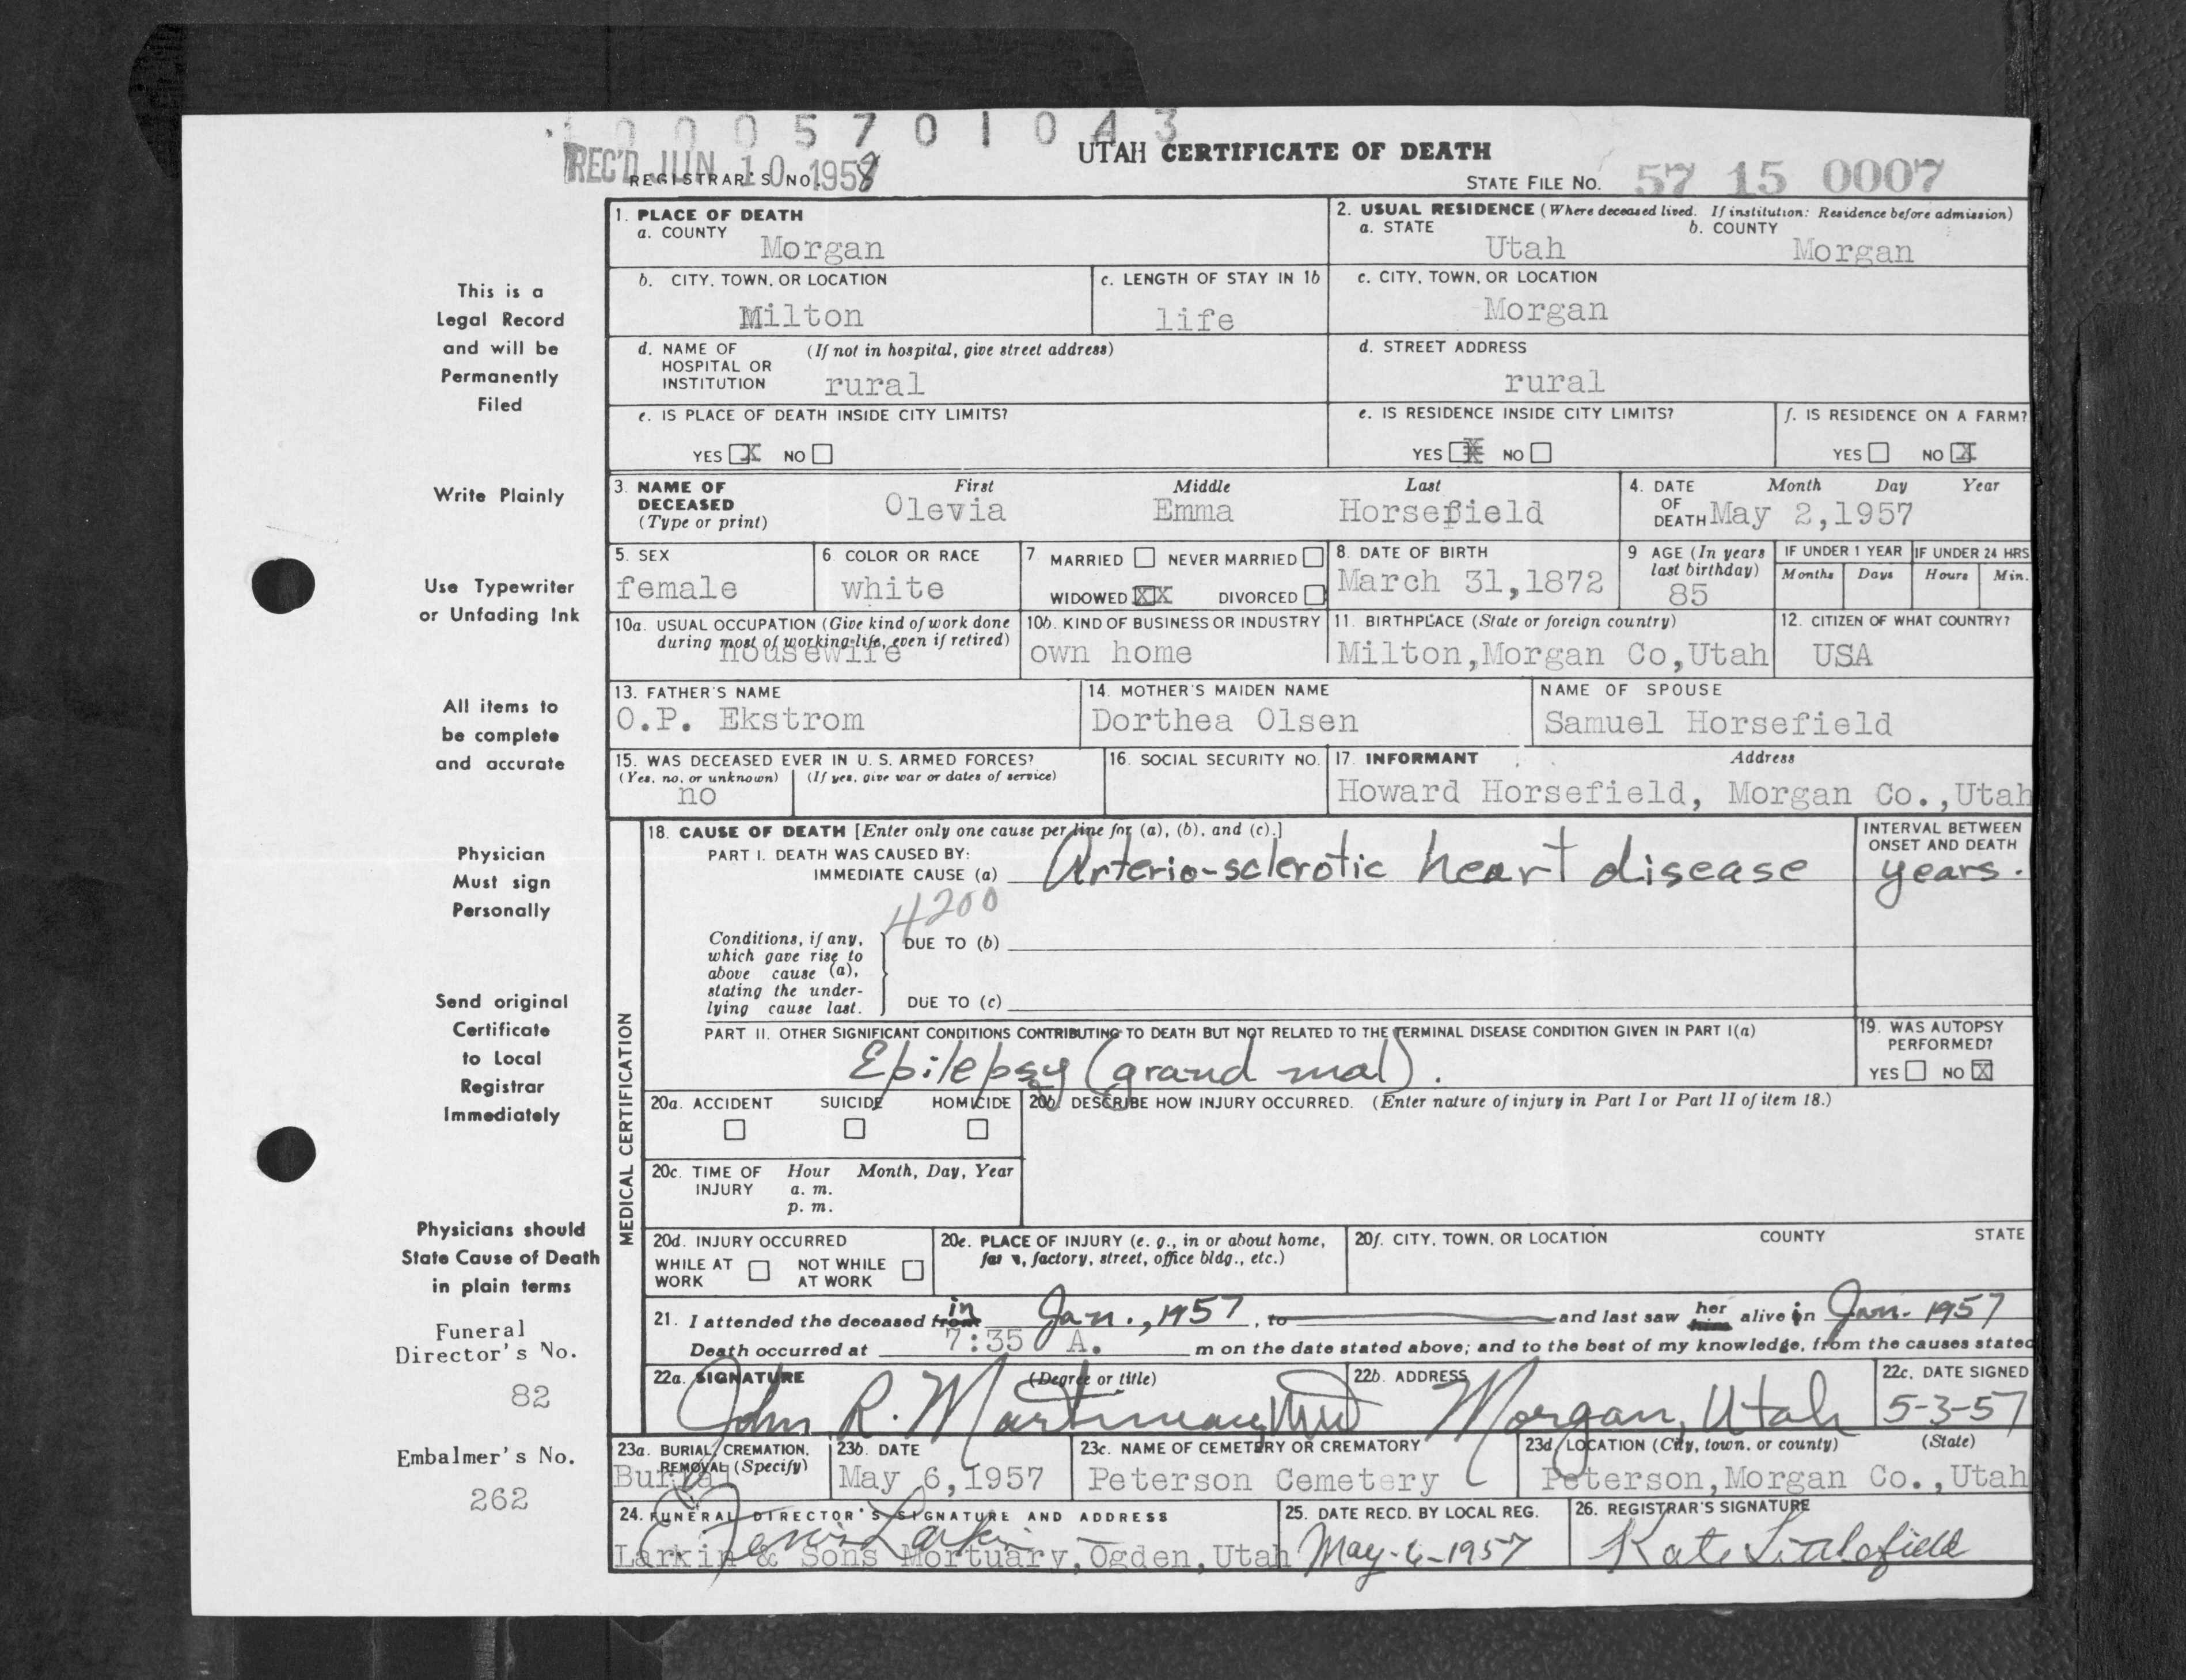 1 0 0 0 5 7 0 1 0 4 3
UTAH CERTIFICATE OF DEATH
REC'D JUN 10 1958
REGISTRAR'S NO.
STATE FILE NO. 57 15 0007
1. PLACE OF DEATH
a. COUNTY
Morgan
2. USUAL RESIDENCE (Where deceased lived. If institution: Residence before admission)
a. STATE b. COUNTY
Utah Morgan
b. CITY, TOWN, OR LOCATION
Milton
c. LENGTH OF STAY IN 1b
life
c. CITY, TOWN, OR LOCATION
Morgan
d. NAME OF (If not in hospital, give street address)
HOSPITAL OR
INSTITUTION rural
d. STREET ADDRESS
rural
e. IS PLACE OF DEATH INSIDE CITY LIMITS?
YES X NO
e. IS RESIDENCE INSIDE CITY LIMITS?
YES X NO
f. IS RESIDENCE ON A FARM?
YES NO X
3. NAME OF First Middle Last
DECEASED Olevia Emma Horsefield
(Type or print)
4. DATE Month Day Year
OF
DEATH May 2,1957
5. SEX
female
6. COLOR OR RACE
white
7 MARRIED NEVER MARRIED
WIDOWED XX DIVORCED
8. DATE OF BIRTH
March 31,1872
9 AGE (In years
last birthday)
85
IF UNDER 1 YEAR
Months Days
IF UNDER 24 HRS
Hours Min.
10a. USUAL OCCUPATION (Give kind of work done
during most of working life, even if retired)
housewife
10b. KIND OF BUSINESS OR INDUSTRY
own home
11. BIRTHPLACE (State or foreign country)
Milton,Morgan Co,Utah
12. CITIZEN OF WHAT COUNTRY?
USA
13. FATHER'S NAME
O.P. Ekstrom
14. MOTHER'S MAIDEN NAME
Dorthea Olsen
NAME OF SPOUSE
Samuel Horsefield
15. WAS DECEASED EVER IN U. S. ARMED FORCES?
(Yes, no, or unknown) (If yes, give war or dates of service)
no
16. SOCIAL SECURITY NO.
17. INFORMANT Address
Howard Horsefield, Morgan Co.,Utah
MEDICAL CERTIFICATION
18. CAUSE OF DEATH [Enter only one cause per line for (a), (b), and (c).]
PART I. DEATH WAS CAUSED BY:
IMMEDIATE CAUSE (a) Arterio-sclerotic heart disease
INTERVAL BETWEEN
ONSET AND DEATH
years.
4200
Conditions, if any,
which gave rise to
above cause (a),
stating the under-
lying cause last.
DUE TO (b)
DUE TO (c)
PART II. OTHER SIGNIFICANT CONDITIONS CONTRIBUTING TO DEATH BUT NOT RELATED TO THE TERMINAL DISEASE CONDITION GIVEN IN PART I(a)
Epilepsy (grand mal).
19. WAS AUTOPSY
PERFORMED?
YES NO X
20a. ACCIDENT SUICIDE HOMICIDE
20b DESCRIBE HOW INJURY OCCURRED. (Enter nature of injury in Part I or Part II of item 18.)
20c. TIME OF Hour Month, Day, Year
INJURY a. m.
p. m.
20d. INJURY OCCURRED
WHILE AT NOT WHILE
WORK AT WORK
20e. PLACE OF INJURY (e. g., in or about home,
farm, factory, street, office bldg., etc.)
20f. CITY, TOWN, OR LOCATION COUNTY STATE
21. I attended the deceased from in Jan., 1957, to and last saw her him alive in Jan. 1957
Death occurred at 7:35 A. m on the date stated above; and to the best of my knowledge, from the causes stated
22a. SIGNATURE (Degree or title)
John R. Martineau, MD
22b. ADDRESS
Morgan, Utah
22c. DATE SIGNED
5-3-57
23a. BURIAL, CREMATION,
REMOVAL (Specify)
Burial
23b. DATE
May 6,1957
23c. NAME OF CEMETERY OR CREMATORY
Peterson Cemetery
23d. LOCATION (City, town, or county) (State)
Peterson,Morgan Co.,Utah
24. FUNERAL DIRECTOR'S SIGNATURE AND ADDRESS
Larkin
Larkin & Sons Mortuary,Ogden,Utah
25. DATE RECD. BY LOCAL REG.
May-6-1957
26. REGISTRAR'S SIGNATURE
Kate Littlefield
This is a
Legal Record
and will be
Permanently
Filed
Write Plainly
Use Typewriter
or Unfading Ink
All items to
be complete
and accurate
Physician
Must sign
Personally
Send original
Certificate
to Local
Registrar
Immediately
Physicians should
State Cause of Death
in plain terms
Funeral
Director's No.
82
Embalmer's No.
262